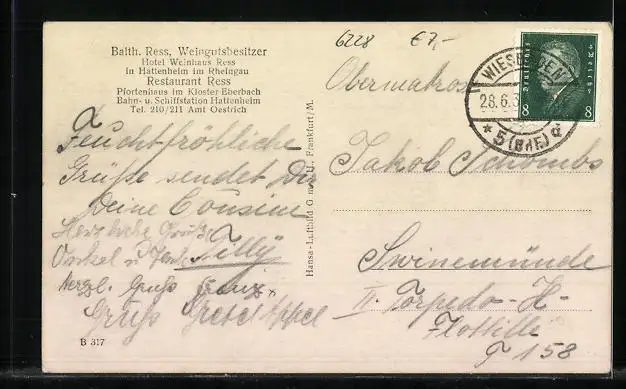 6228 €7,-
Balth. Ress, Weingutsbesitzer
Hotel Weinhaus Ress
in Hattenheim im Rheingau
Restaurant Ress
Pfortenhaus im Kloster Eberbach
Bahn- u. Schiffstation Hattenheim
Tel. 210/211 Amt Oestrich
Feuchtfröhliche
Grüße sendet Dir
Deine Cousine
Tilly
Herzliche Grüße
Onkel u.
Herzl. Gruß
Gruß Gretel Appel
B 317
Hansa-Luftbild G. m. b. H., Frankfurt/M.
WIESBADEN
28.6.3
* 5 (BHF) d
Deutsches Reich
8 8
Obermatrose
Jakob Schombs
Swinemünde
II. Torpedo-H-
Flottille
T 158